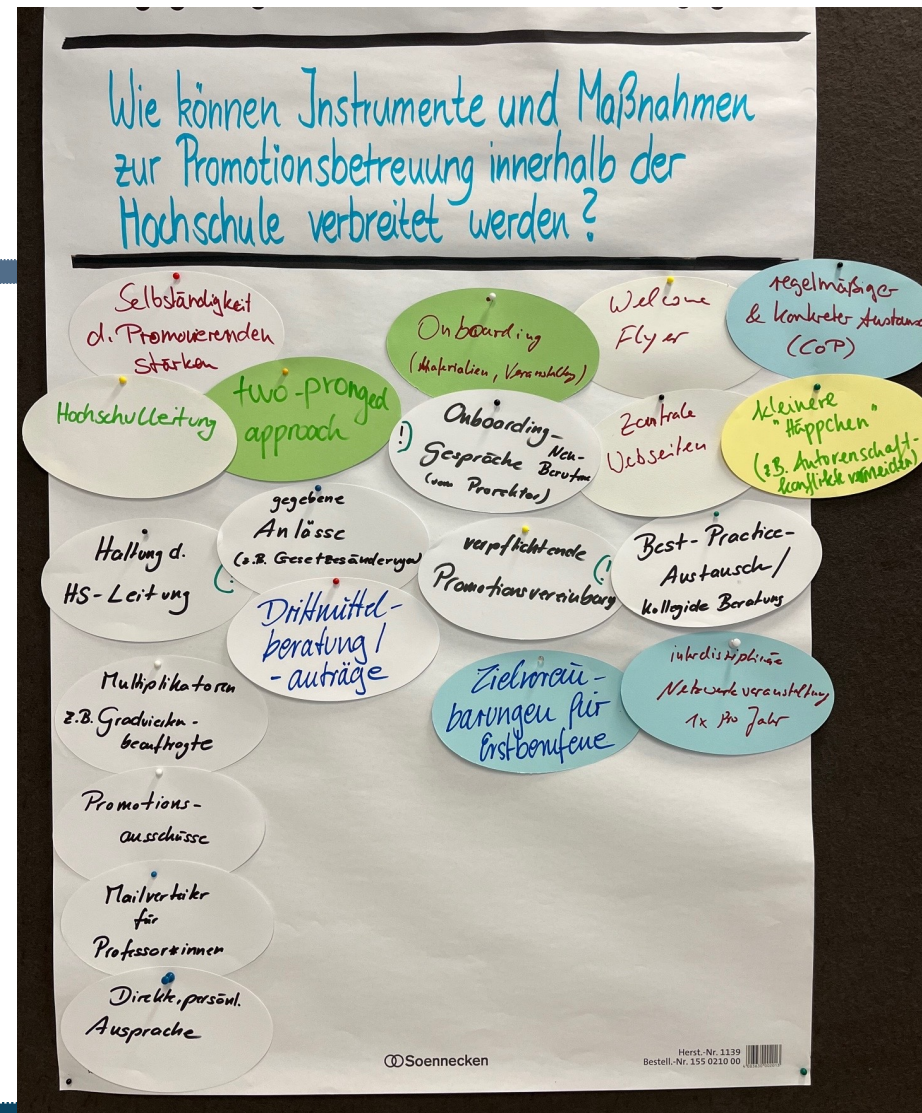 Wie können Instrumente und Maßnahmen
zur Promotionsbetreuung innerhalb der
Hochschule verbreitet werden?
Selbständigkeit
d. Promovierenden
stärken
Hochschulleitung
two-pronged
approach
Haltung d.
HS-Leitung
(!
gegebene
Anlässe
(z.B. Gesetzesänderungen)
Drittmittel-
beratung/
-anträge
Multiplikatoren
z.B. Graduierten-
beauftragte
Promotions-
ausschüsse
Mailverteiler
für
Professor*innen
Direkte, persönl.
Ansprache
Onboarding
(Materialien, Veranstaltg)
!)
Onboarding-
Gespräche Neu-
Berufene
(vom Prorektor)
verpflichtende
Promotionsvereinbarg
(!
Zielverein-
barungen für
Erstberufene
Welcome
Flyer
Zentrale
Webseiten
Best-Practice-
Austausch/
Kollegiale Beratung
interdisziplinäre
Netzwerkveranstaltung
1x pro Jahr
regelmäßiger
& konkreter Austausch
(CoP)
kleinere
"Häppchen"
(z.B. Autorenschaft-
konflikte vermeiden)
Soennecken
Herst.-Nr. 1139
Bestell.-Nr. 155 0210 00